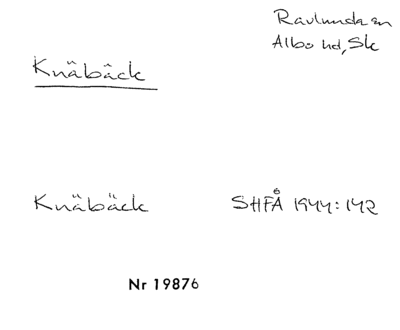 Ravlunda sn
Albo hd, Sk
Knäbäck
Knäbäck SHFÅ 1944:142
Nr 19876